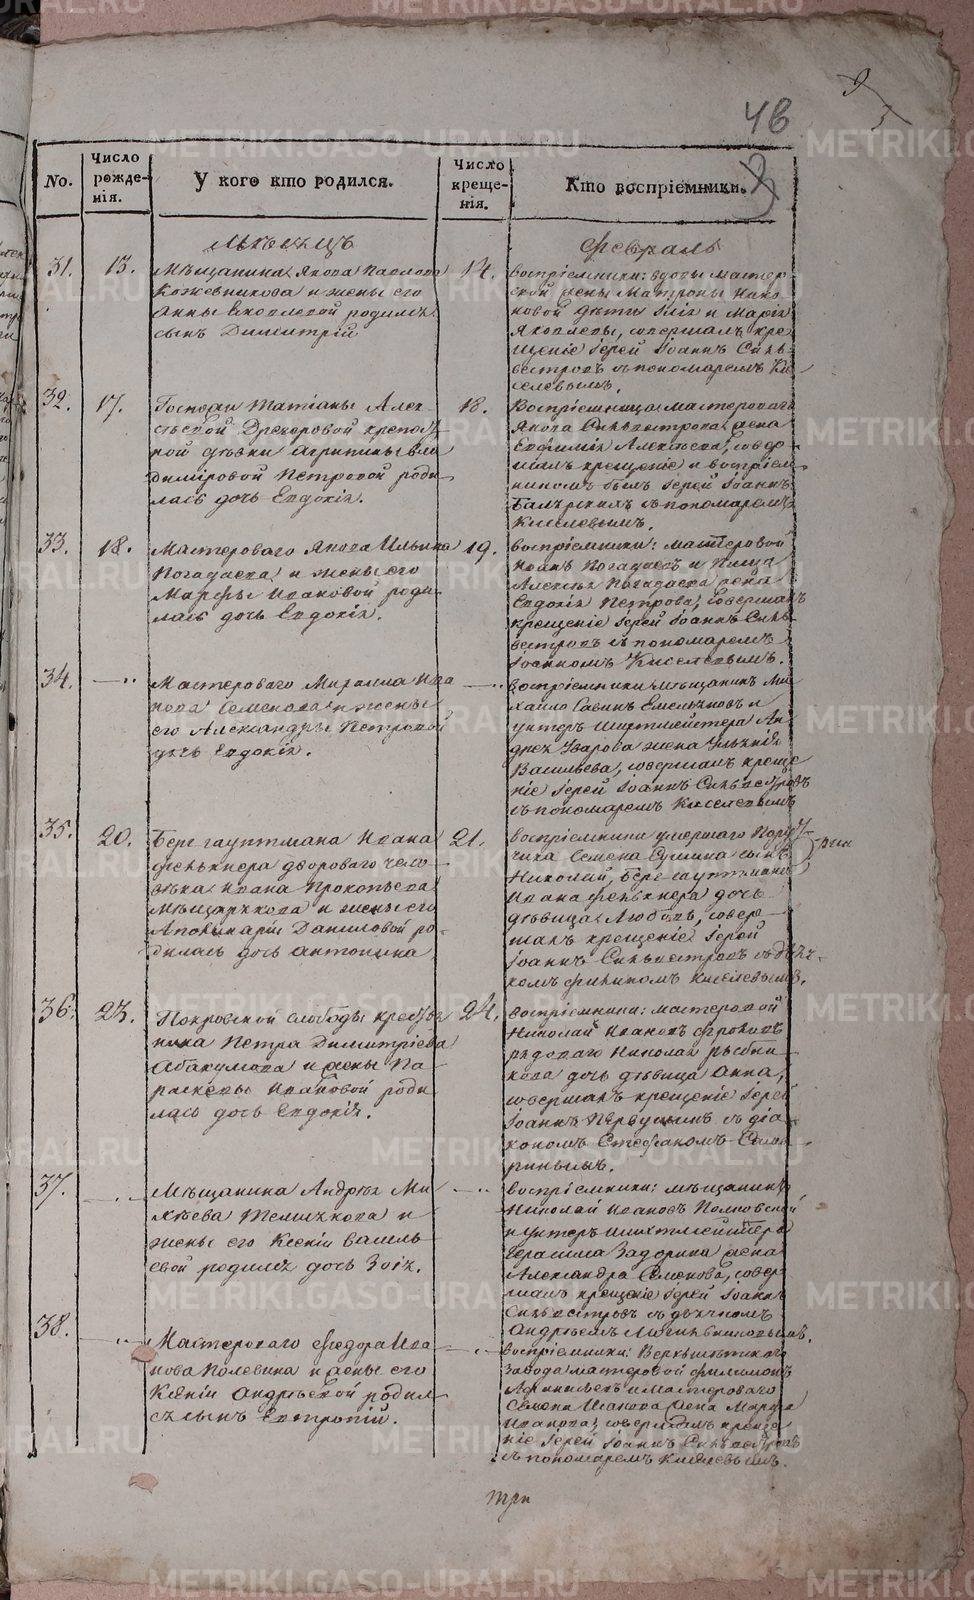 4в
No.
Число рожденія.
У кого кто родился.
Число крещенія.
Кто воспріемники.
Мѣсяцъ
Февраль
31.
13.
Мѣщанина Якова Павлова
Кожевникова и жены его
Анны Яковлевой родился
сынъ Димитрій
14.
воспріемники: вдовы мастер
ской жены Матроны
новой дѣти Илія и Марія
Яковлевы, совершалъ кре
щеніе Іерей Іоаннъ Силь
вестровъ съ пономаремъ Ки
селевымъ.
32.
17.
Госпожи Татіаны Алек
сѣевой крепост
ной дѣвки Агрипины Вла
димировой Петровой роди
лась дочь Евдокія.
18.
Воспріемница мастероваго
Якова Сильвестрова жена
Евфимія Алексѣева, совер
шалъ крещеніе и воспріем
никомъ былъ Іерей Іоаннъ
съ пономаремъ
Киселевымъ.
33.
18.
Мастероваго Якова Ильина
Погадаева и жены его
Марѳы Ивановой роди
лась дочь Евдокія.
19.
воспріемники: мастеровой
Иванъ Погадаевъ и
Алексѣя Погадаева жена
Евдокія Петрова, совершалъ
крещеніе Іерей Іоаннъ Силь
вестровъ съ пономаремъ
Іоанномъ Киселевымъ.
34.
Мастероваго Ива
нова Семенова и жены
его Александры Петровой
дочь Евдокія.
воспріемники мѣщанинъ Ми
хайло Савинъ Емельяновъ и
унтеръ шихтмейстера Ан
дрея Уварова жена Ульянія
Васильева, совершалъ креще
ніе Іерей Іоаннъ Сильвестровъ
съ пономаремъ Киселевымъ
35.
20.
Берггауптмана Ивана
двороваго чело
вѣка Ивана Прокопьева
Мѣщерякова и жены его
Апполинаріи Даниловой ро
дилась дочь Антонина
21.
воспріемники умершаго Пору
чика Семена Сушина сынъ
Николай, Берггауптмана
Ивана дочь
дѣвица Любовь, совер
шалъ крещеніе Іерей
Іоаннъ Сильвестровъ съ дьяч
комъ Киселевымъ.
36.
23.
Покровской слободы крестья
нина Петра Димитріева
Абакумова и жены Па
раскевы Ивановой роди
лась дочь Евдокія.
24.
воспріемники: мастеровой
Николай Ивановъ Фроловъ
рядоваго Николая Рыбни
кова дочь дѣвица Анна,
совершалъ крещеніе Іерей
Іоаннъ Первушинъ съ діа
кономъ Стефаномъ
37.
Мѣщанина Андрея Ми
хѣева Телешкова и
жены его Ксеніи Василь
евой родилась дочь Зоія.
воспріемники: мѣщанинъ
Николай Ивановъ
и унтеръ шихтмейстера
Герасима Задорина жена
Александра Семенова, совер
шалъ крещеніе Іерей Іоаннъ
Сильвестровъ съ дьячкомъ
Андреемъ
38.
Мастероваго Федора Ива
нова Полевина и жены его
Ксеніи Андреевой родил
ся сынъ Евтропій.
воспріемники: Верхъисетскаго
завода мастеровой Филимонъ
и мастероваго
Семена Исакова жена Марѳа
Иванова, совершалъ креще
ніе Іерей Іоаннъ Сильвестровъ
съ пономаремъ Киселевымъ.
три
METRIKI.GASO-URAL.RU